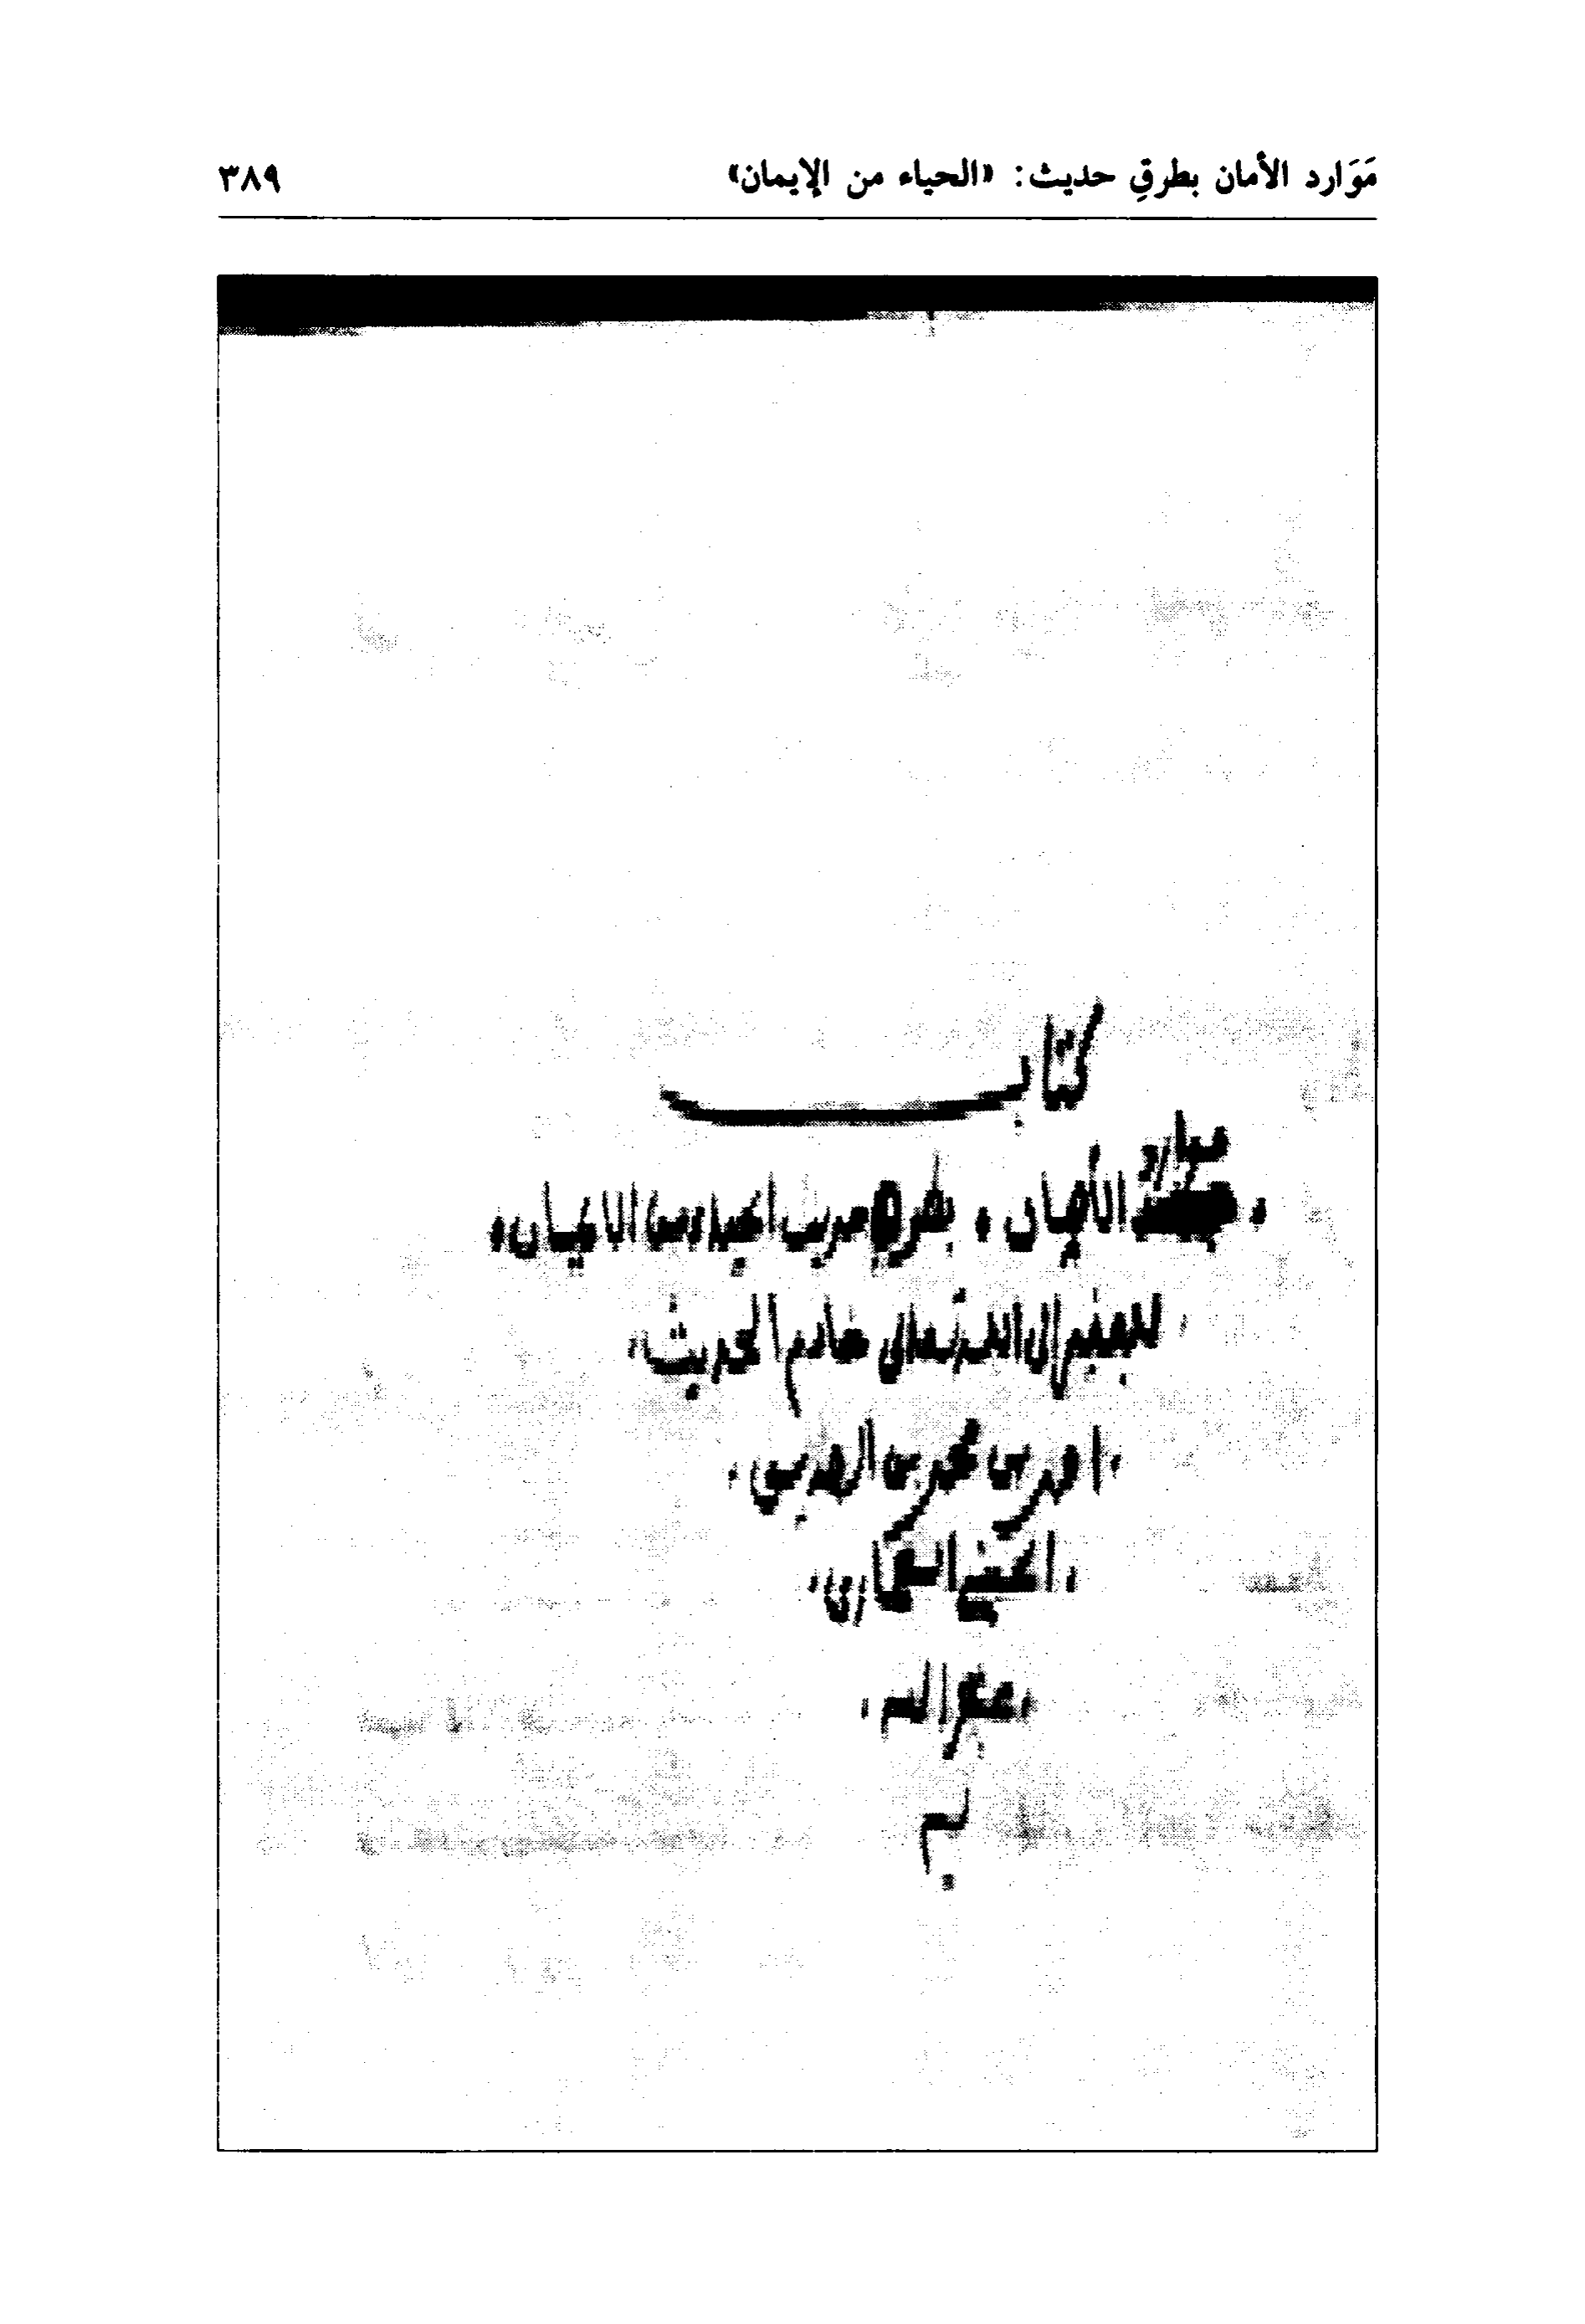 مَوَارد الأمان بطرقِ حديث: «الحياء من الإيمان» ٣٨٩
كتاب
موارد
الأمان ، بطرق حديث الحياء من الايمان ،
للفقير الى الله تعالى خادم الحديث
احمد بن محمد بن الصديق
الحسني الغماري
غفر الله
له